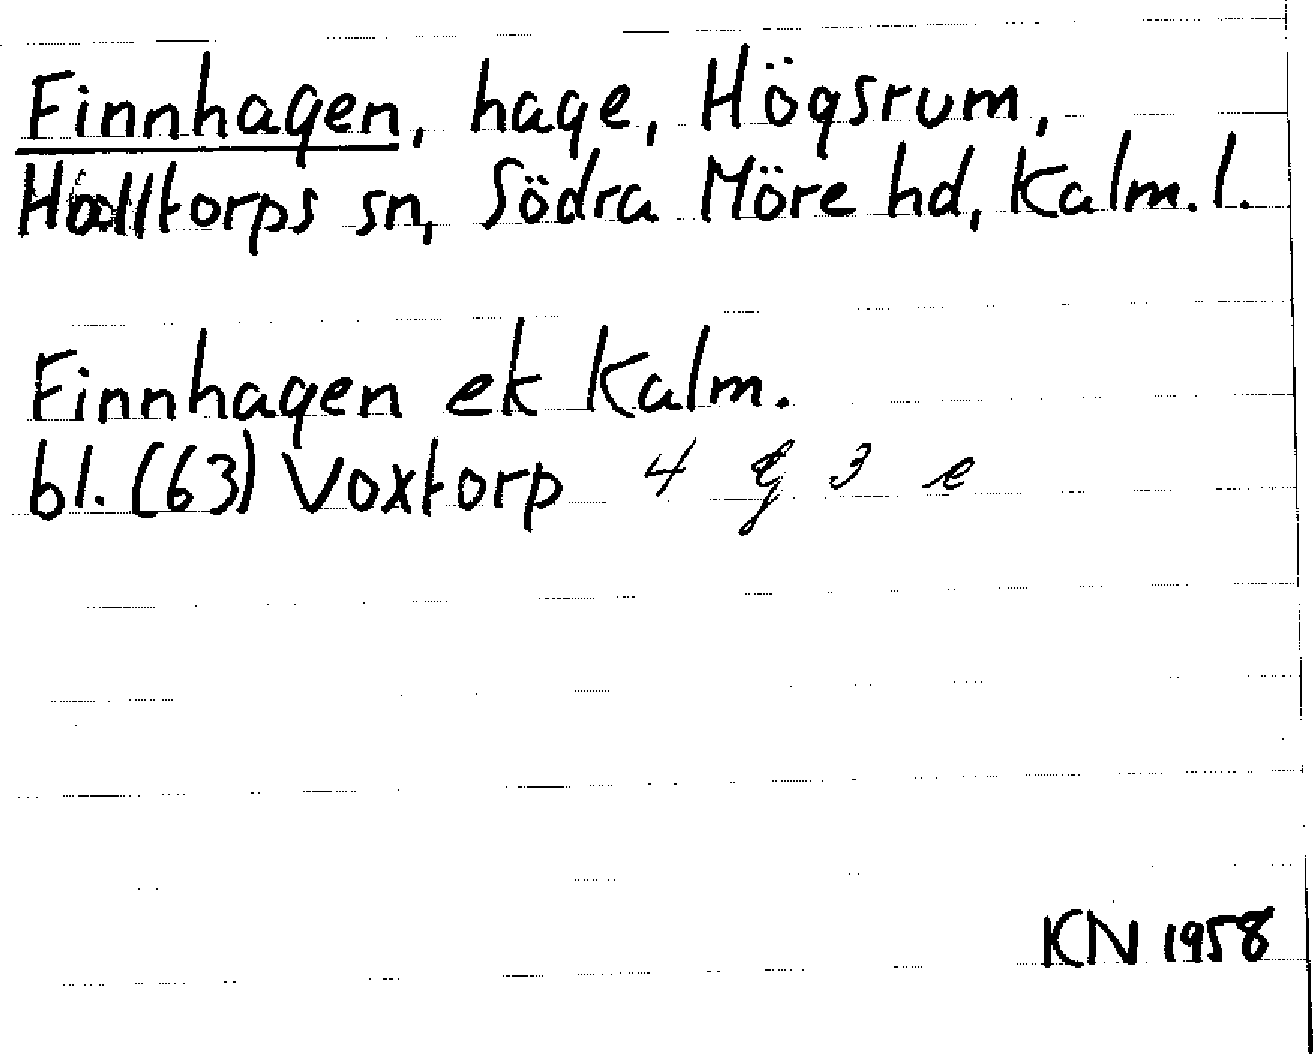 Finnhagen, hage, Högsrum,
Halltorps sn, Södra Möre hd, Kalm. l.
Finnhagen ek Kalm.
bl. (63) Voxtorp 4 G 3 e
KN 1958